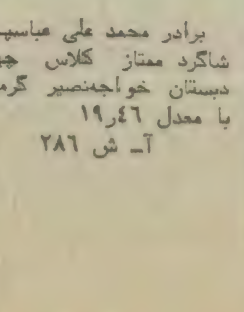 برادر محمد علی عباسپ
شاگرد ممتاز کلاس چه
دبستان خواجه‌نصیر گرم
با معدل ۱۹٫۴۶
آ‌ـ ش ۲۸۶